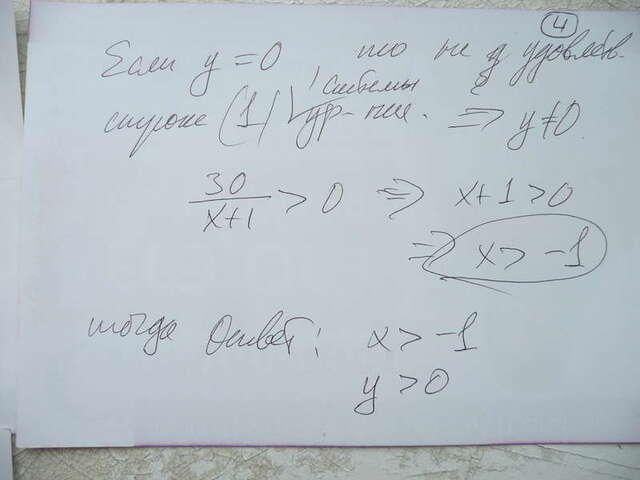 4
Если y = 0, то не удовлетв.
строке (1) системы
ур-ние. ⇒ y ≠ 0
30/(x+1) > 0 ⇒ x+1 > 0
⇒ x > -1
тогда Ответ: x > -1
y > 0